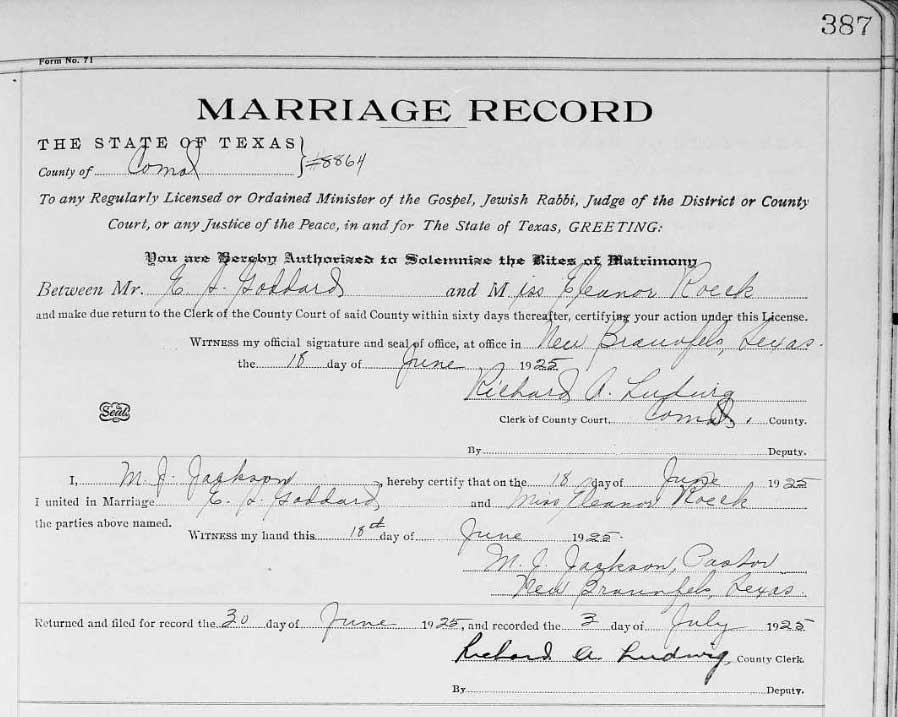 387
Form No. 71
MARRIAGE RECORD
THE STATE OF TEXAS }
County of Comal } #8864
To any Regularly Licensed or Ordained Minister of the Gospel, Jewish Rabbi, Judge of the District or County
Court, or any Justice of the Peace, in and for The State of Texas, GREETING:
You are Hereby Authorized to Solemnize the Rites of Matrimony
Between Mr. Goddard and Miss Eleanor Roeck
and make due return to the Clerk of the County Court of said County within sixty days thereafter, certifying your action under this License.
WITNESS my official signature and seal of office, at office in New Braunfels, Texas.
the 18 day of June 1925
Richard A. Ludwig
Seal
Clerk of County Court, Comal, County.
By Deputy.
I, M. J. Jackson, hereby certify that on the 18 day of June 1925
I united in Marriage Goddard, and Miss Eleanor Roeck
the parties above named.
WITNESS my hand this 18th day of June 1925.
M. J. Jackson, Pastor
New Braunfels, Texas.
Returned and filed for record the 30 day of June 1925, and recorded the 3 day of July 1925
Richard A Ludwig, County Clerk.
By Deputy.